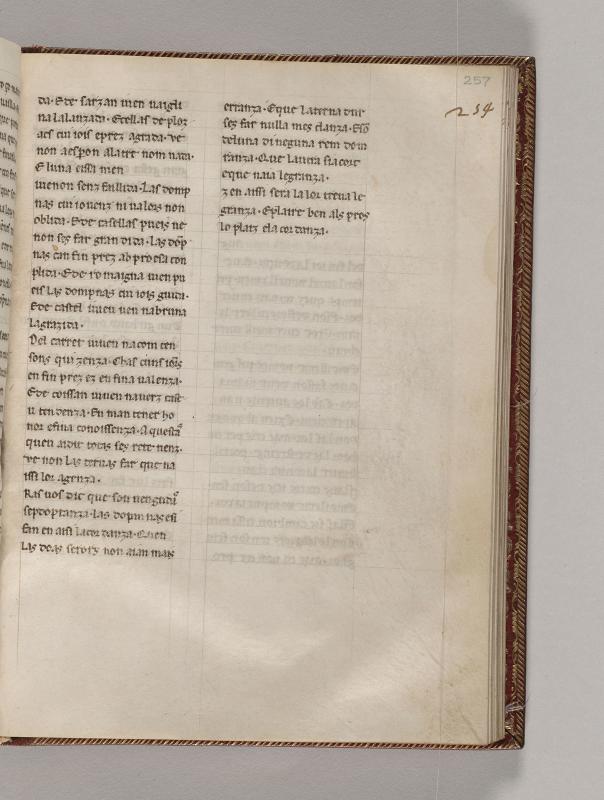 257
254
da. Ede sarzan uien naigli
na laluizada. Ecellas de ploz
acs cui iois eprez agrada. ve
non aespon alatre nom nata.
E luna eissi men
iuenon senz faillida. Las domp
nas cui iouenz ni ualors non
oblida. Ede casellas pueis ne
non ses far gran dida. Las dōp
nas can fin prez ab proesa con
plida. Ede romaigna uien pu
eis las dompnas cui iois guida.
Ede castel uieu uen nabruna
lagrazida.
Del carret uiuen nacom cen
sons qui zenza. Chas cuns iois
en fin prez ez en fina ualenza.
Ede coissan uiuen nauerz cast
u tendenza. En man tener ho
nor efina conoissenza. A questa
quen aidir totas ses rete nenz.
ve non las ternas far que na
issi lor agenza.
Ras uos dic que son uengudas
sepdoptanza. las domnas eu
san en aisi lacor danza. Quen
las doas serors non aian mais
erranza. Eque laterna dur
ses far nulla mes clanza. Eso
deluna dineguna rem dom
tanza. Que lautra sia cort
eque naia legranza.
z en aissi sera la lor treua le
granza. Eplaire ben als pros
lo plaiz ela cordanza.